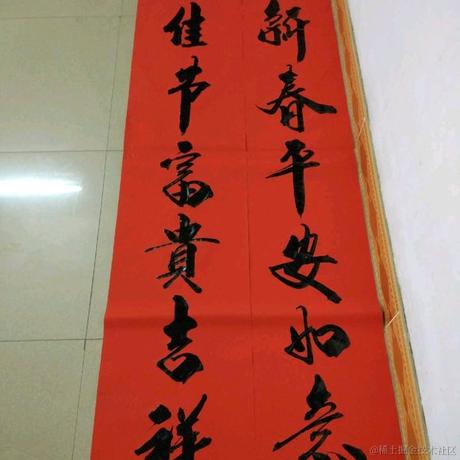 新春平安如意
佳节富贵吉祥
@稀土掘金技术社区